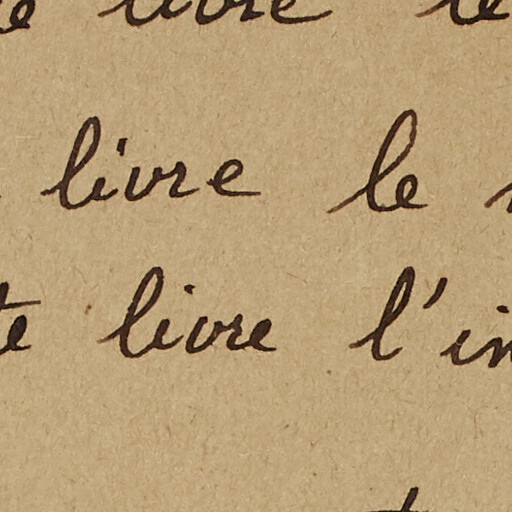 livre le
livre le
te livre l'in